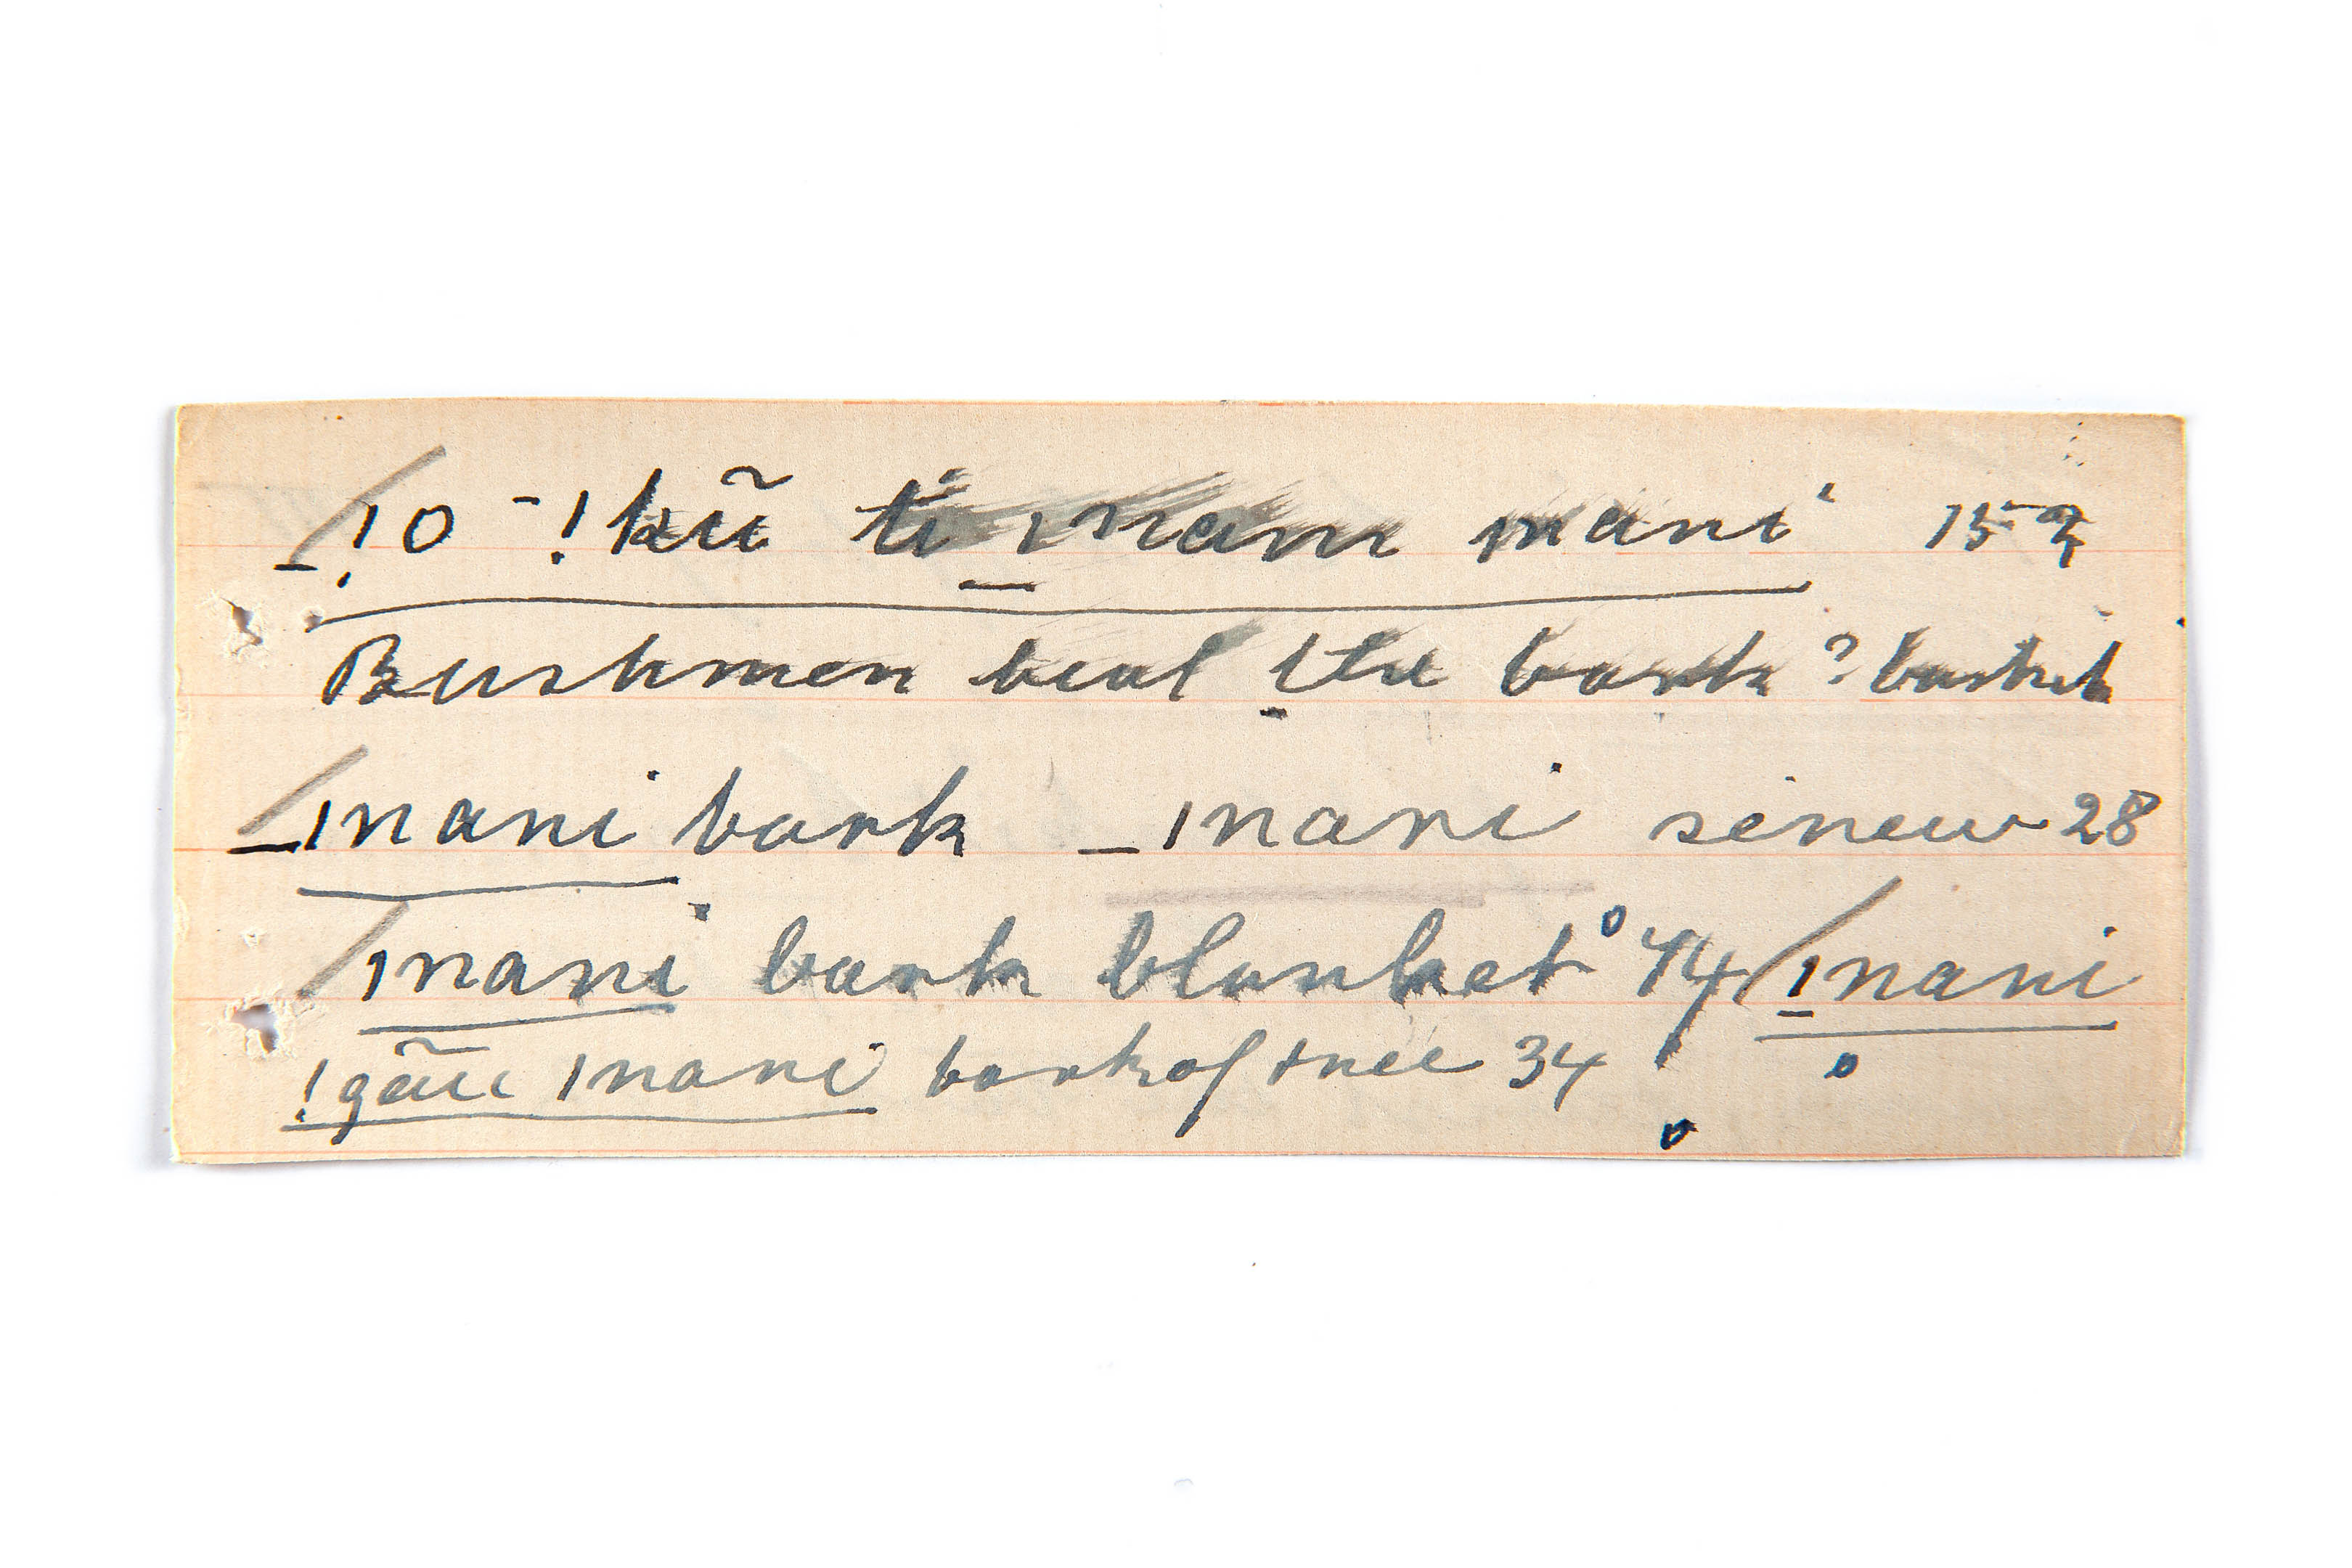 !o-!kũ ti ǀnam ǀnani 152
Bushmen beat the bark ?
ǀnani bark ǀnani sinew 28
ǀnani bark blanket 44 ǀnani
!gãu ǀnani bark of tree 34